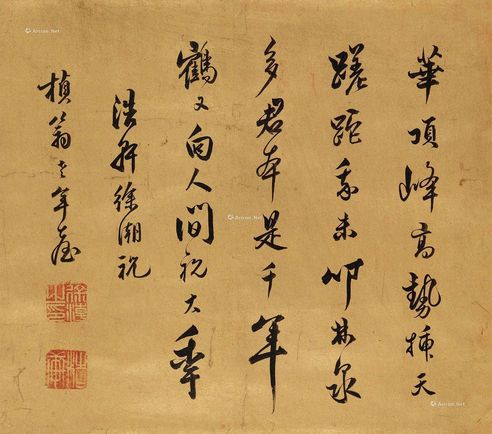 華頂峰高勢插天
蹉跎我未叩林泉
多君本是千年
鶴又向人間祝大秊
浩軒徐潮祝
楨翁老年臺
Artron.Net
Artron.Net
Artron.Net